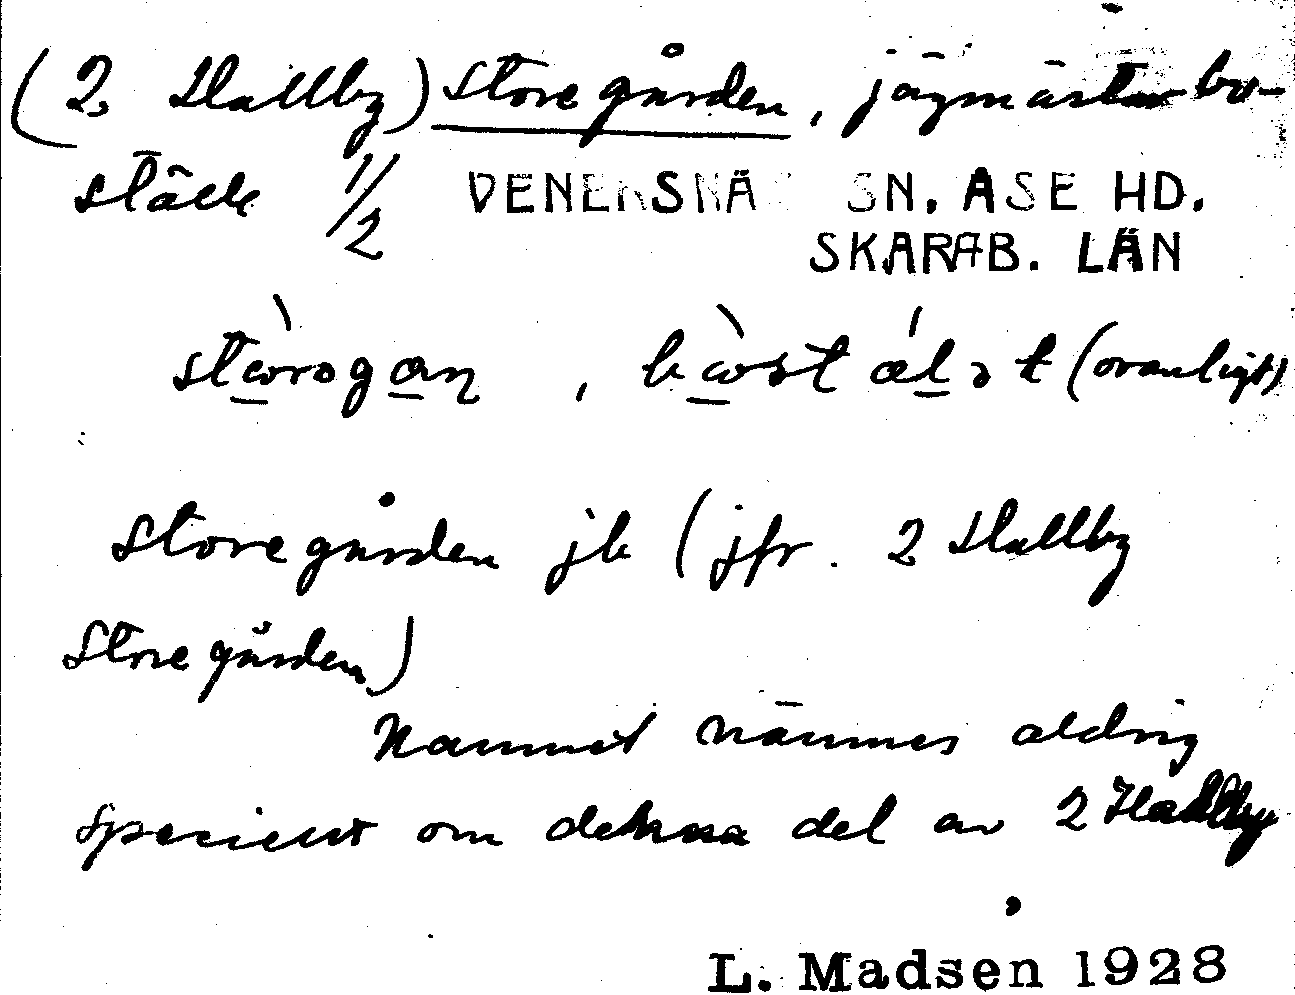 (2 Hallby) Storegården, jägmästarbo-
ställe 1/2 VENERSNÄ SN. ASE HD.
SKARAB. LÄN
, (ovanligt)
Storegården jb (jfr. 2 Hallby
Storegården)
Namnet nämnes aldrig
speciellt om denna del av 2 Hallby
L. Madsen 1928